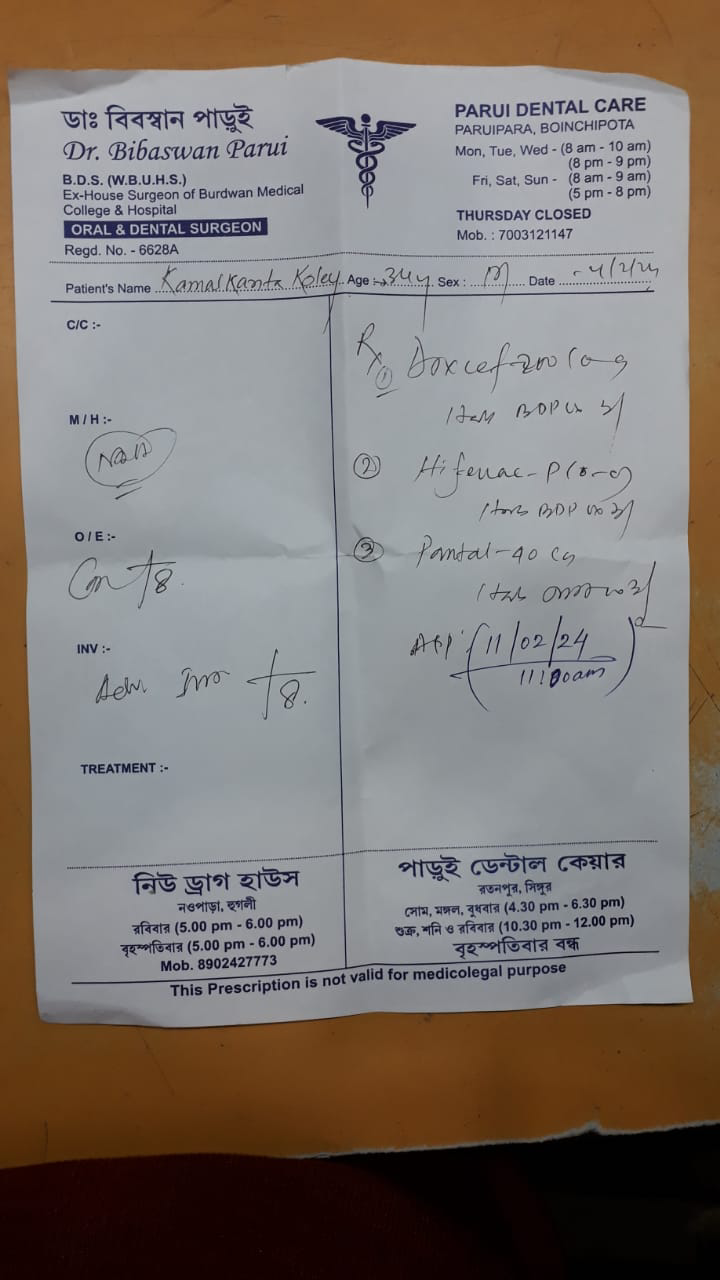 ডাঃ বিবস্বান পাড়ুই
Dr. Bibaswan Parui
B.D.S. (W.B.U.H.S.)
Ex-House Surgeon of Burdwan Medical
College & Hospital
ORAL & DENTAL SURGEON
Regd. No. - 6628A
PARUI DENTAL CARE
PARUIPARA, BOINCHIPOTA
Mon, Tue, Wed - (8 am - 10 am)
(8 pm - 9 pm)
Fri, Sat, Sun - (8 am - 9 am)
(5 pm - 8 pm)
THURSDAY CLOSED
Mob. : 7003121147
Patient's Name Kamalkanta Koley Age :- 34y Sex : M Date 4/2/24
C/C :-
M / H :-
O / E :-
INV :-
Adv. 8.
TREATMENT :-
Rx
① Doxcef-200
1 tab
② Hifenac-P
1 tab
③ Pantal-40
1 tab
(11/02/24
11:00am)
নিউ ড্রাগ হাউস
নওপাড়া, হুগলী
রবিবার (5.00 pm - 6.00 pm)
বৃহস্পতিবার (5.00 pm - 6.00 pm)
Mob. 8902427773
পাড়ুই ডেন্টাল কেয়ার
রতনপুর, সিঙ্গুর
সোম, মঙ্গল, বুধবার (4.30 pm - 6.30 pm)
শুক্র, শনি ও রবিবার (10.30 pm - 12.00 pm)
বৃহস্পতিবার বন্ধ
This Prescription is not valid for medicolegal purpose